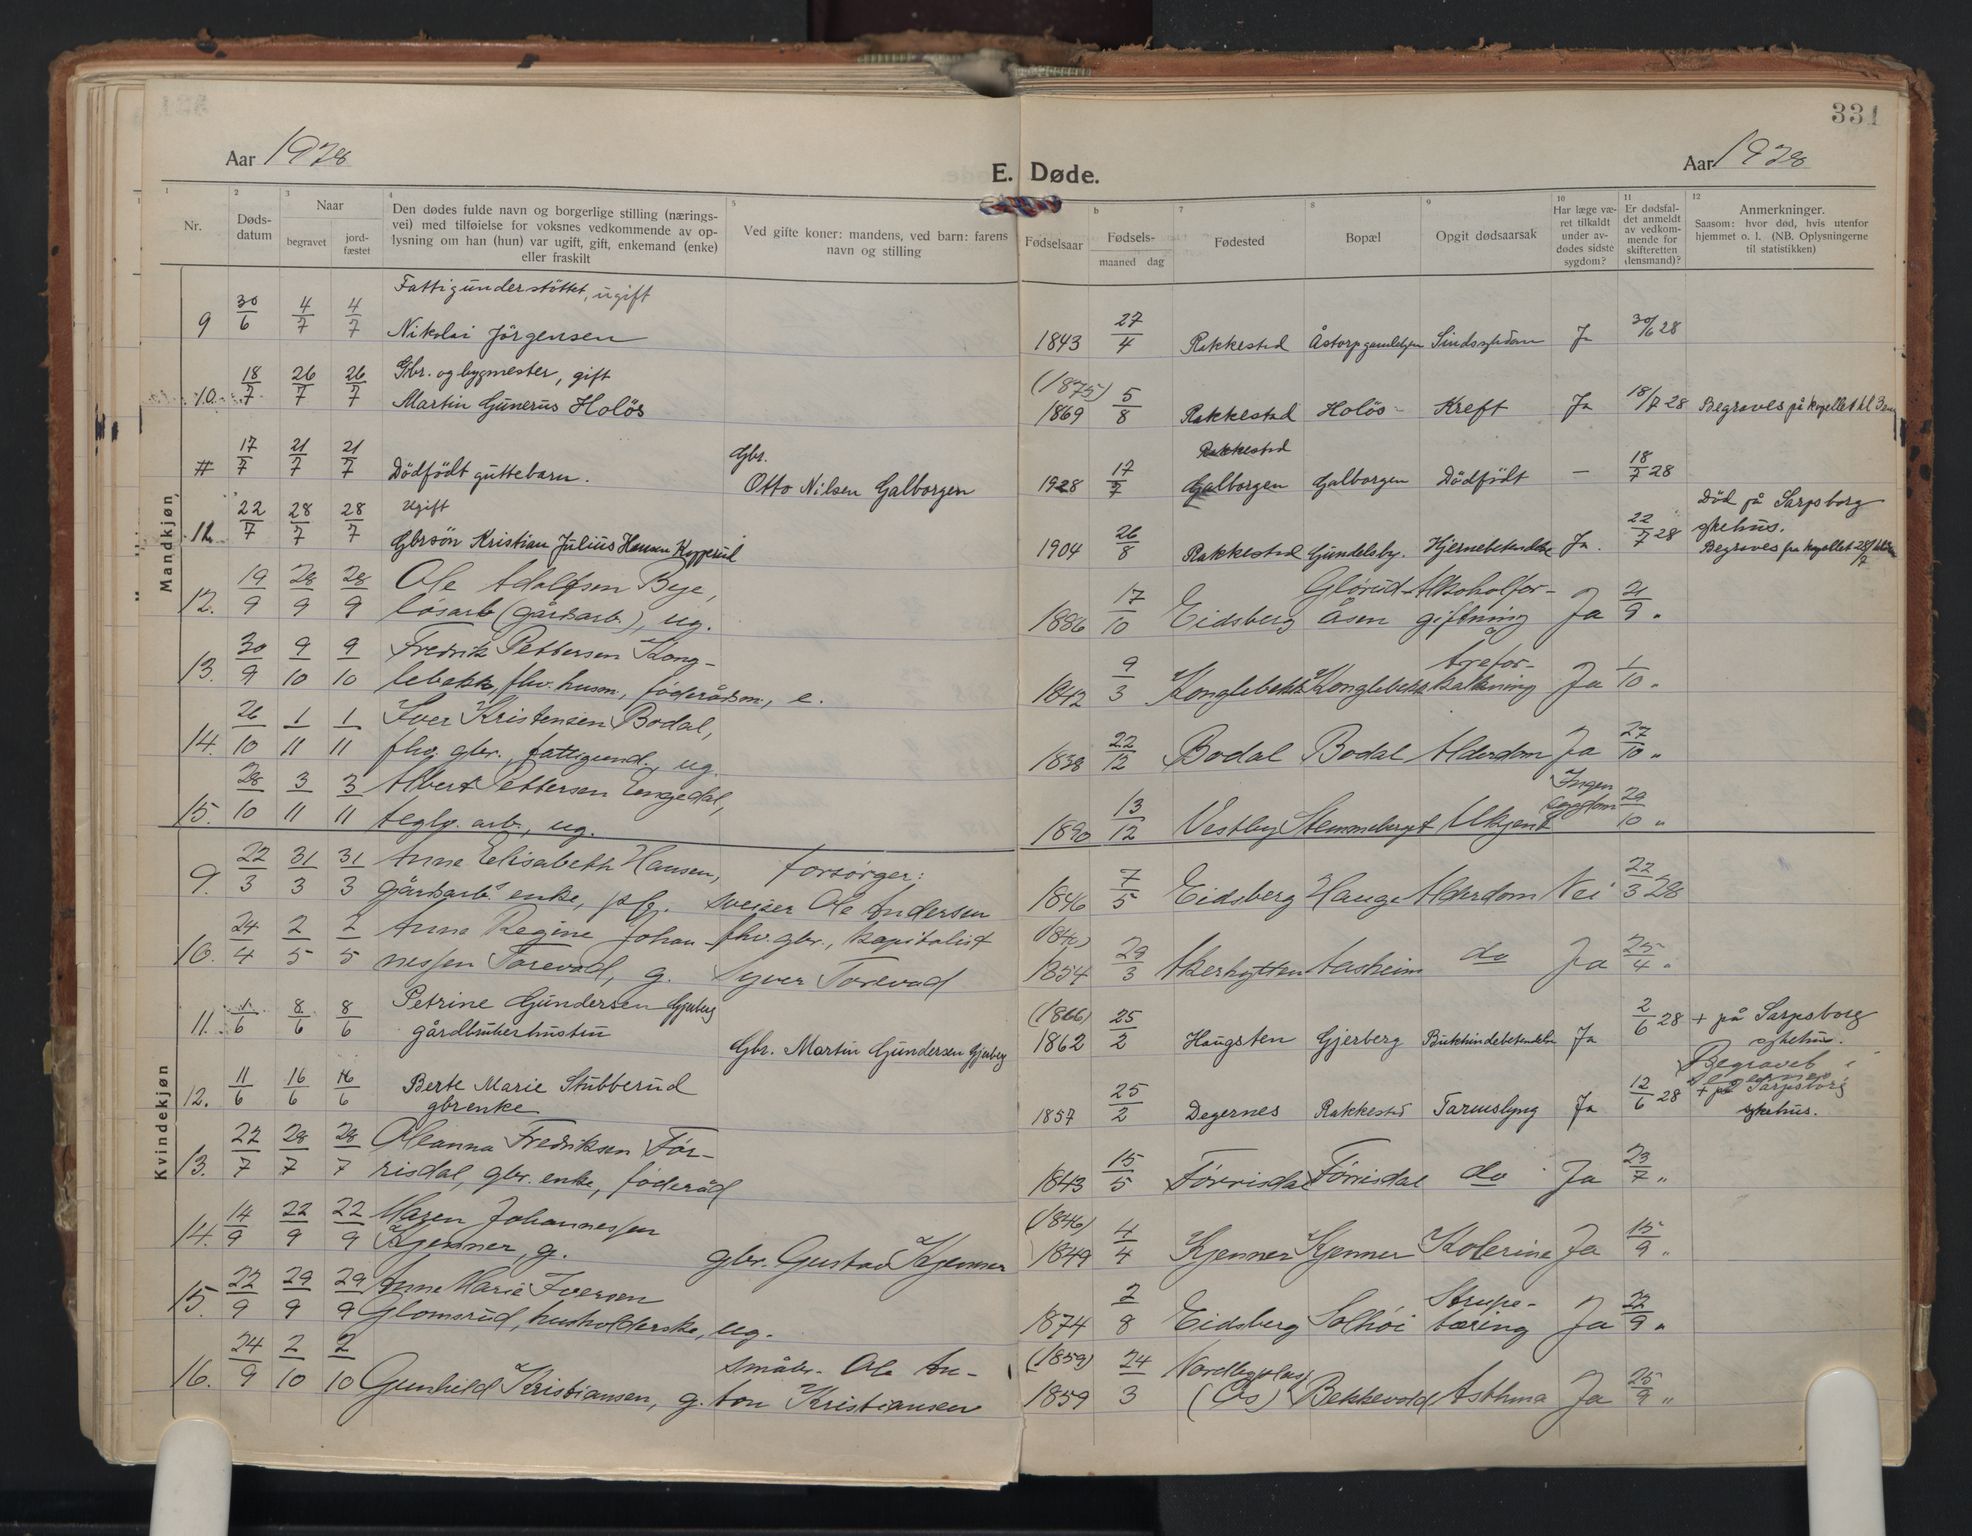 331
Aar 1928
E. Døde.
Aar 1928
1 2 3 4 5 b 7 8 9 10 11 12
Nr.
Døds-
datum
Naar
begravet
jord-
fæstet
Den dødes fulde navn og borgerlige stilling (nærings-
vei) med tilføielse for voksnes vedkommende av op-
lysning om han (hun) var ugift, gift, enkemand (enke)
eller fraskilt
Ved gifte koner: mandens, ved barn: farens
navn og stilling
Fødselsaar
Fødsels-
maaned dag
Fødested
Bopæl
Opgit dødsaarsak
Har læge væ-
ret tilkaldt
under av-
dødes sidste
sygdom?
Er dødsfal-
det anmeldt
av vedkom-
mende for
skifteretten
(lensmand)?
Anmerkninger.
Saasom: hvor død, hvis utenfor
hjemmet o. l. (NB. Oplysningerne
til statistikken)
Mandkjøn
Fattigunderstöttet, ugift
9 30/6 4/7 4/7 Nikolai Jörgensen 1843 27/4 Rakkestad Åstorp gamlehjem Sindssykdom Ja 30/6 28
Gbr. og bygmester, gift (1875)
10. 18/7 26/7 26/7 Martin Gunerus Holös 1869 5/8 Rakkestad Holös Kreft Ja 18/7 28 Begraves på kapellet kl 3 em
Gbr. Rakkestad
# 17/7 21/7 21/7 Dödfödt guttebarn. Otto Nilsen Galborgen 1928 17/7 Galborgen Galborgen Dödfödt — 18/7 28
Ugift Död på Sarpsborg
sykehus.
11. 22/7 28/7 28/7 Gbrsön Kristian Julius Hansen Kopperud 1904 26/8 Rakkestad Gundelsby. Hjernebetendelse Ja. 22/7 28 Begraves fra kapellet 28/7
12. 19/9 28/9 28/9 Ole Adolfsen Bye, Glørud- Alkoholfor-
løsarb. (gårdsarb.), ug. 1886 17/10 Eidsberg Åsen giftning Ja 21/9 "
13. 30/9 9/10 9/10 Fredrik Pettersen Kong- Årefor-
lebekk, fhv. husm., føderådsm., e. 1842 9/3 Konglebekk Konglebekk kalkning Ja 1/10 "
14. 26/10 1/11 1/11 Iver Kristensen Bodal,
fhv. gbr., fattigund., ug. 1838 22/12 Bodal Bodal Alderdom Ja 27/10 "
15. 28/10 3/11 3/11 Albert Pettersen Engedal, Ingen
sygdom
teglv. arb., ug. 1890 13/12 Vestby Stemmeberget Ukjent 29/10 "
Kvindekjøn
9. 22/3 31/3 31/3 Anne Elisabeth Hansen, Forsørger:
gårdsarb. enke, sveiser Ole Andersen 1846 7/5 Eidsberg Hauge Alderdom Nei 22/3 28
10. 24/4 2/5 2/5 Anna Regine Johan- fhv. gbr., kapitalist (1840)
nessen Torevad, g. Syver Torevad 1854 29/3 Akerhytten Aasheim do Ja 25/4 "
11. 1/6 8/6 8/6 Petrine Gundersen Gjerberg (1866)
gårdbrukerhustru Gbr. Martin Gundersen Gjerberg 1862 25/2 Haugsten Gjerberg Bukhindebetendelse Ja 2/6 28 + på Sarpsborg
sykehus.
Begravet i
Degernes
12. 11/6 16/6 16/6 Berte Marie Stubberud
gbrenke 1857 25/2 Degernes Rakkestad Tarmslyng Ja 12/6 28 + på Sarpsborg
sykehus.
13. 22/7 28/7 28/7 Oleanna Fredriksen Før-
risdal, gbr. enke, føderåd 1843 15/5 Førrisdal Førrisdal do Ja 23/7 "
14. 14/9 22/9 22/9 Maren Johannessen (1846)
Kjenner, g. gbr. Gustav Kjenner 1849 4/4 Kjenner Kjenner Kolerine Ja 15/9 "
15. 22/9 29/9 29/9 Anne Marie Iversen Strupe-
Glomsrud, husholderske, ug. 1874 2/8 Eidsberg Solhøi tæring Ja 22/9 "
16. 24/9 2/10 2/10 småbr. Ole An- (1859)
Gunhild Kristiansen, g. ton Kristiansen 1859 24/3 (Os) Bekkevold Asthma Ja 25/9 "